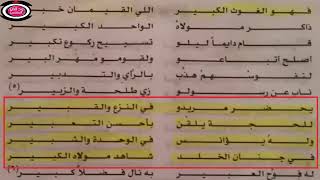 فهو الغوث الكبير اللي القيمان خبير
ذاكر مولاه الواحد الكبير
قام دايماً ليلو تسبيح ركوع تكبير
اصلح أتباعو ولقومو مهر البير
لنفوسهم هذب بالرأي والتدبير
ناب عن رسولو زي طلحة والزبير (٥)
يحضر مريدو في النزع والقبير
للحجة يلقن بأحسن التعبير
وله يؤانس في الوحدة والشبير
في جنان الخلد شاهد مولاه الكبير
له فوح العبير به نال فضلاً كبير (٦)